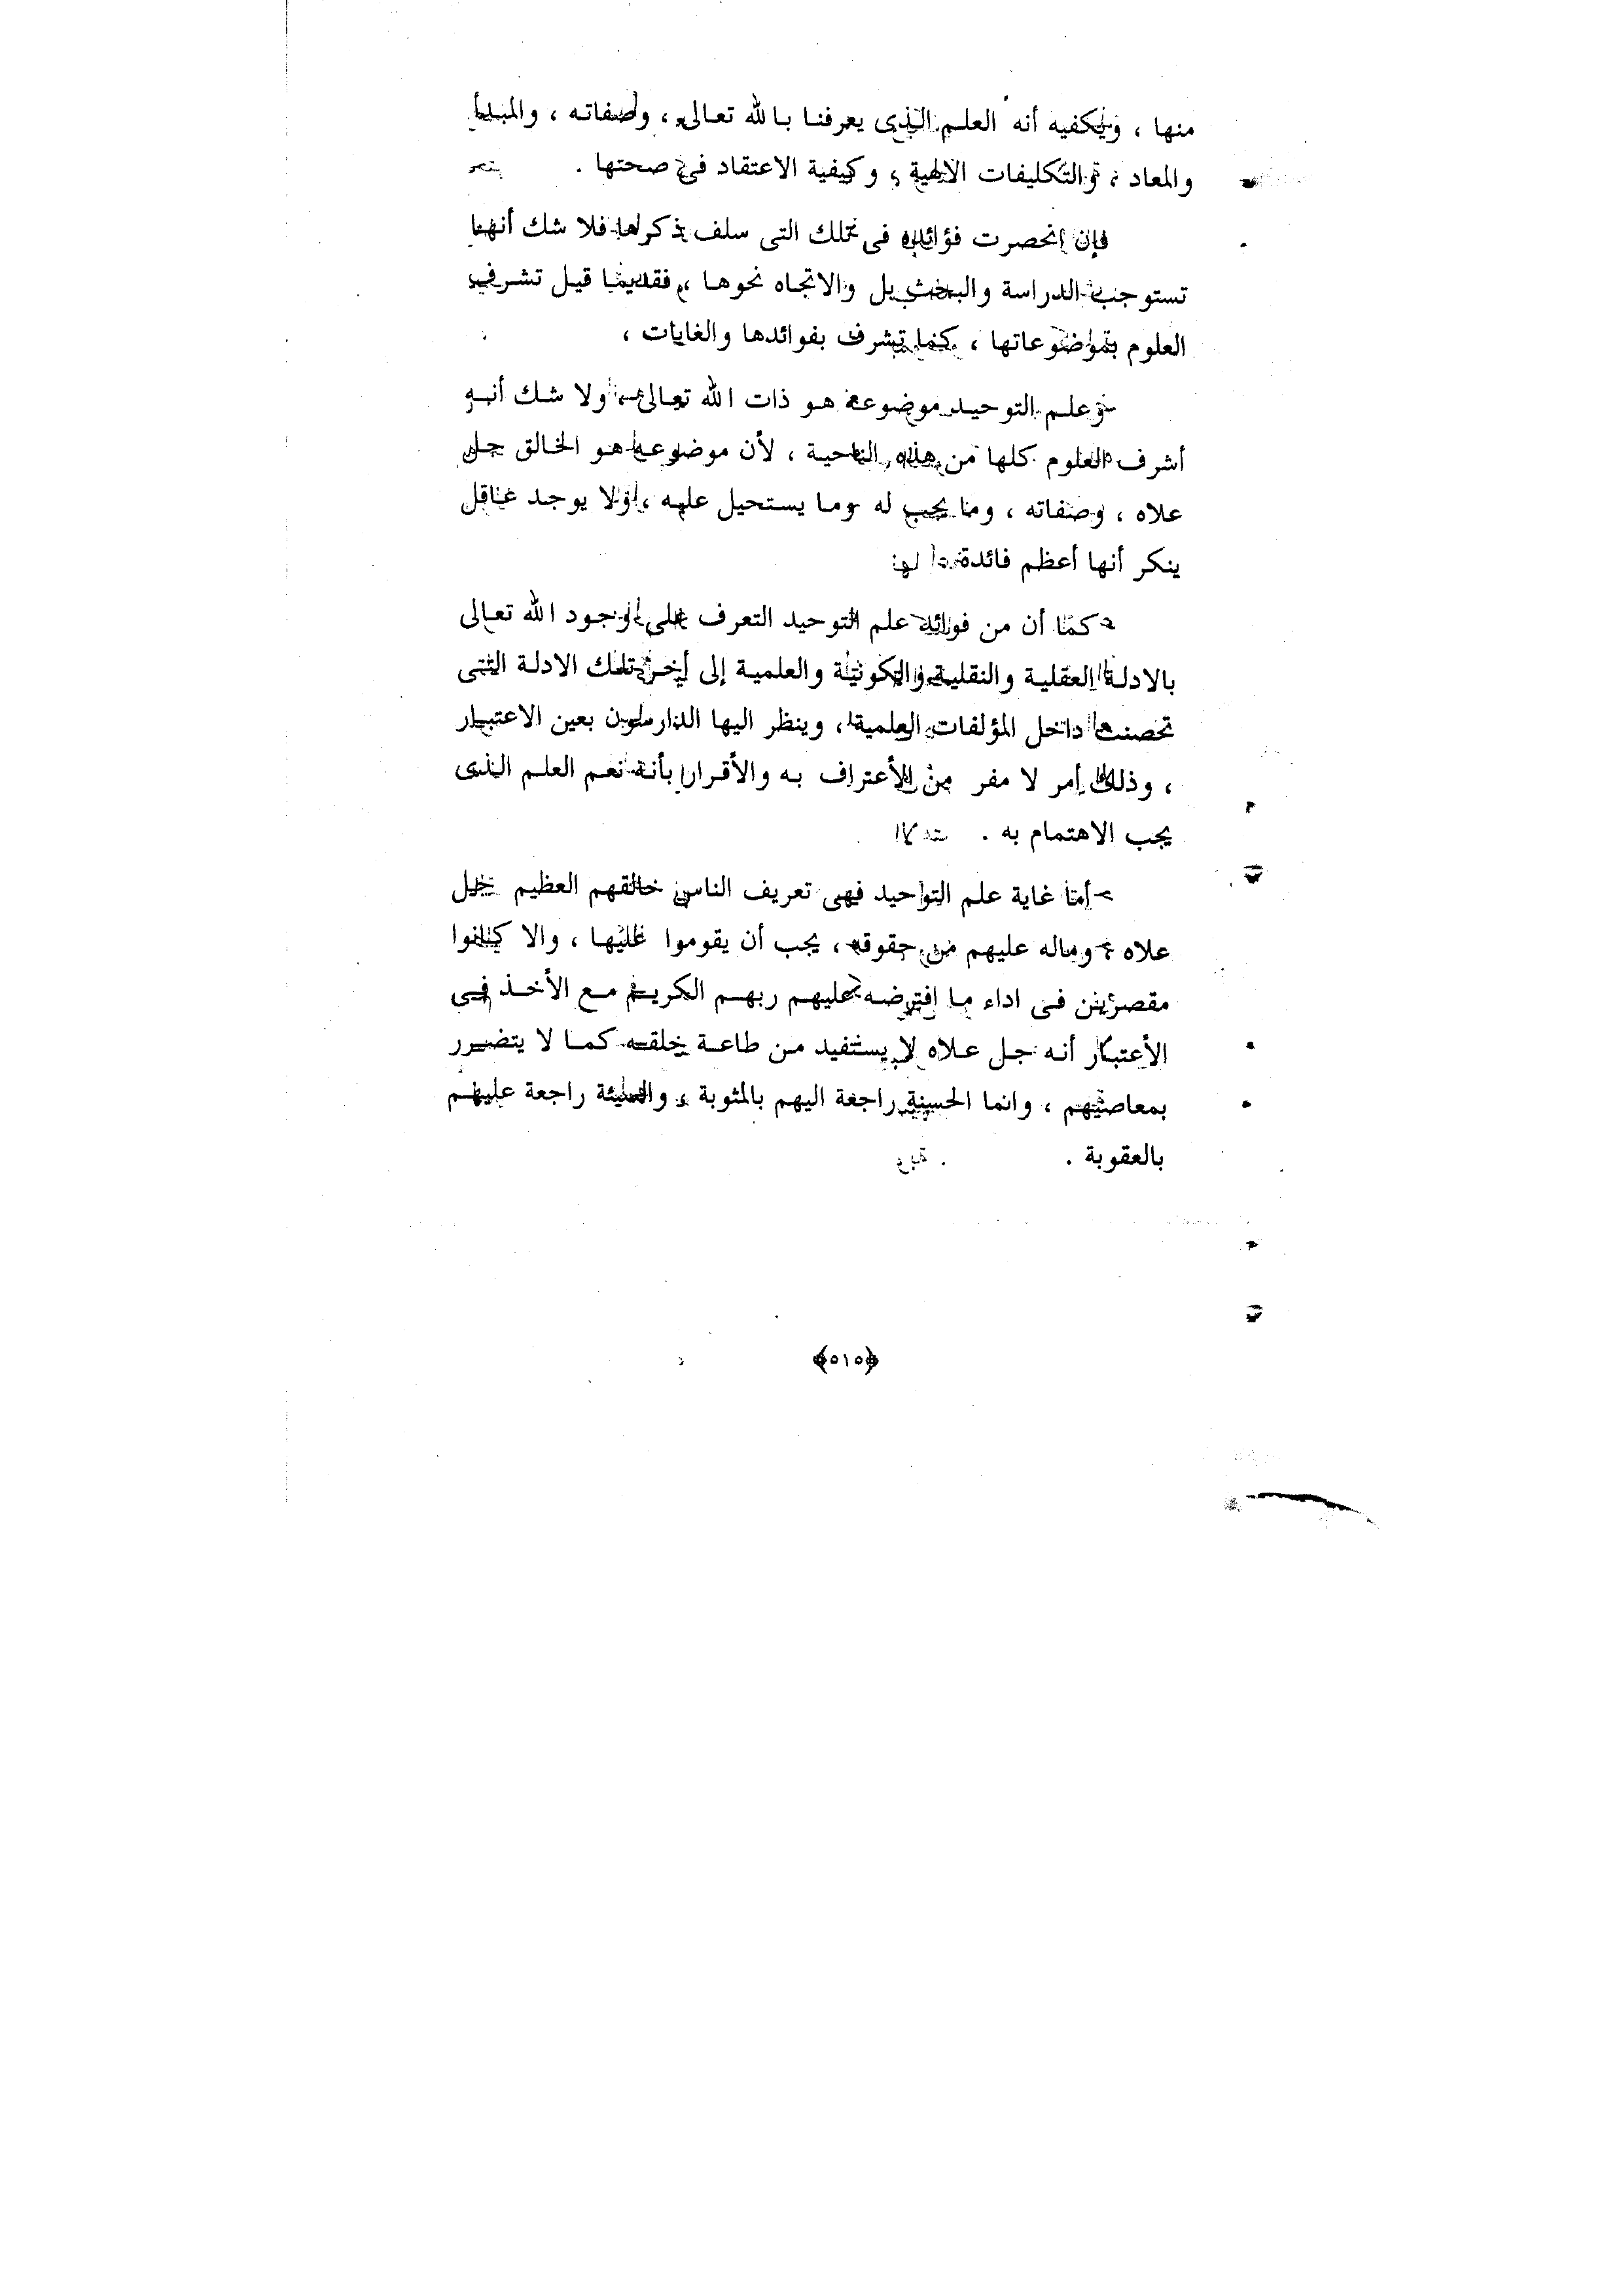 منها ، ويكفيه أنه العلم الذى يعرفنا بالله تعالى ، وصفاته ، والمبدأ
والمعاد ، والتكليفات الالهية ، وكيفية الاعتقاد فى صحتها .
فإن انحصرت فؤائده فى تلك التى سلف ذكرها فلا شك أنها
تستوجب الدراسة والبحث بل والاتجاه نحوها ، فقديما قيل تشرف
العلوم بموضوعاتها ، كما تشرف بفوائدها والغايات ،
وعلم التوحيد موضوعه هو ذات الله تعالى ، ولا شك أنه
أشرف العلوم كلها من هذه الناحية ، لأن موضوعها هو الخالق جل
علاه ، وصفاته ، وما يجب له وما يستحيل عليه ، ولا يوجد عاقل
ينكر أنها أعظم فائدة
كما أن من فوائد علم التوحيد التعرف على وجود الله تعالى
بالادلة العقلية والنقلية والكونية والعلمية إلى أخر تلك الادلة التى
تحصنت داخل المؤلفات العلمية ، وينظر اليها الدارسون بعين الاعتبار
، وذلك أمر لا مفر من الأعتراف به والأقرار بأنه نعم العلم الذى
يجب الاهتمام به .
أما غاية علم التوحيد فهى تعريف الناس خالقهم العظيم جل
علاه ، وماله عليهم من حقوق ، يجب أن يقوموا عليها ، والا كانوا
مقصرين فى اداء ما افترضه عليهم ربهم الكريم مع الأخذ فى
الأعتبار أنه جل علاه لا يستفيد من طاعة خلقه كما لا يتضرر
بمعاصيهم ، وانما الحسنة راجعة اليهم بالمثوبة ، والسيئة راجعة عليهم
بالعقوبة .
﴿٥١٥﴾